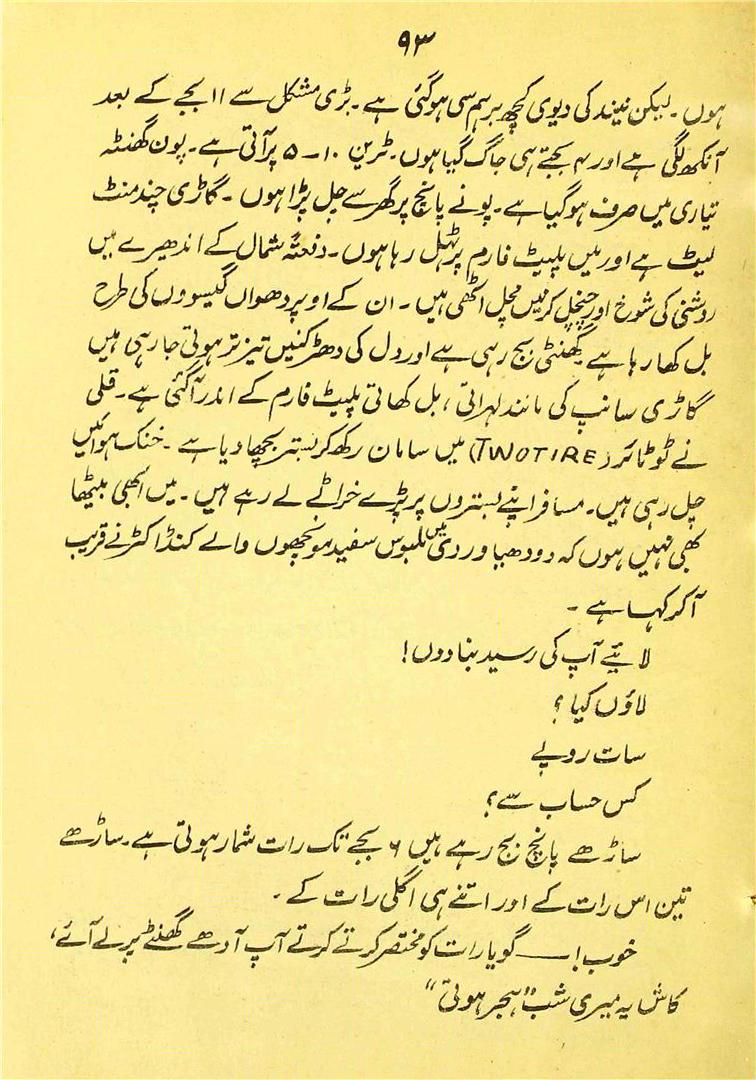 ۹۳
ہوں۔ لیکن نیند کی دیوی کچھ برہم سی ہو گئی ہے۔ بڑی مشکل سے ۱۱ بجے کے بعد
آنکھ لگی ہے اور ۴ بجتے ہی جاگ گیا ہوں۔ ٹرین ۱۰-۵ پر آتی ہے۔ پون گھنٹہ
تیاری میں صرف ہو گیا ہے۔ پونے پانچ پر گھر سے چل پڑا ہوں۔ گاڑی چند منٹ
لیٹ ہے اور میں پلیٹ فارم پر ٹہل رہا ہوں۔ دفعتہً شمال کے اندھیرے میں
روشنی کی شوخ اور چنچل کرنیں مچل اٹھی ہیں۔ ان کے اوپر دھواں گیسووں کی طرح
بل کھا رہا ہے گھنٹی بج رہی ہے اور دل کی دھڑکنیں تیز تر ہوتی جا رہی ہیں
گاڑی سانپ کی مانند لہراتی، بل کھاتی پلیٹ فارم کے اندر آگئی ہے۔ قلی
نے ٹو ٹائر (TWOTIRE) میں سامان رکھ کر بستر بچھا دیا ہے۔ خنک ہوائیں
چل رہی ہیں۔ مسافر اپنے بستروں پر پڑے خراٹے لے رہے ہیں۔ میں ابھی بیٹھا
بھی نہیں ہوں کہ دودھیا وردی میں ملبوس سفید مونچھوں والے کنڈاکٹر نے قریب
آ کر کہا ہے۔
لائیے آپ کی رسید بنا دوں!
لاؤں کیا؟
سات روپے
کس حساب سے؟
ساڑھے پانچ بج رہے ہیں ۶ بجے تک رات شمار ہوتی ہے۔ ساڑھے
تین اس رات کے اور اتنے ہی اگلی رات کے۔
خوب! ــــ گویا رات کو مختصر کرتے کرتے آپ آدھے گھنٹے پر لے آئے،
کاش یہ میری شب "ہجر ہوتی"